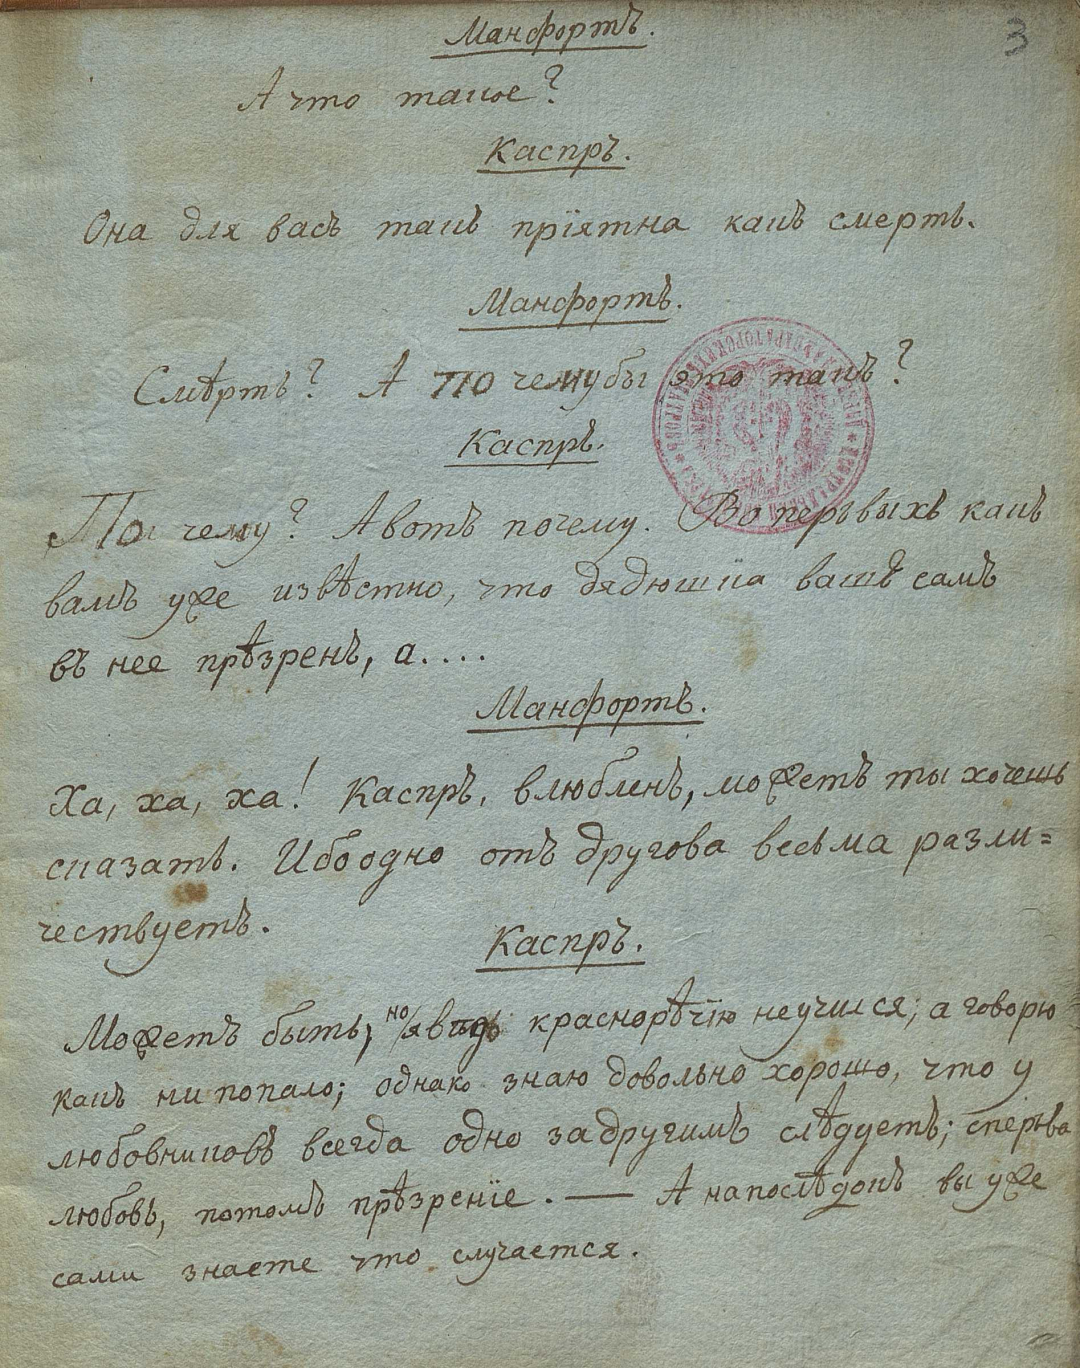 Манфортъ.
3
А что такое?
Каспръ.
Она для васъ такъ прїятна какъ смерть.
Манфортъ.
Смѣрть? А по чемубы это такъ?
Каспръ.
По чему? А вотъ почему. Во перьвыхъ какъ
вамъ уже извѣстно, что дядюшка вашъ самъ
въ нее прѣзренъ, а....
Манфортъ.
Ха, ха, ха! Каспръ, влюбленъ, можетъ ты хочешь
сказать. Ибо одно отъ другова весьма разли=
чествуетъ.
Каспръ.
Можетъ быть, но я краснорѣчїю не учился; а говорю
какъ ни попало; однако знаю довольно хорошо, что у
любовниковъ всегда одно за другимъ слѣдуетъ; сперьва
любовь, потомъ прѣзренїе. — А напослѣдокъ вы уже
сами знаете что случается.